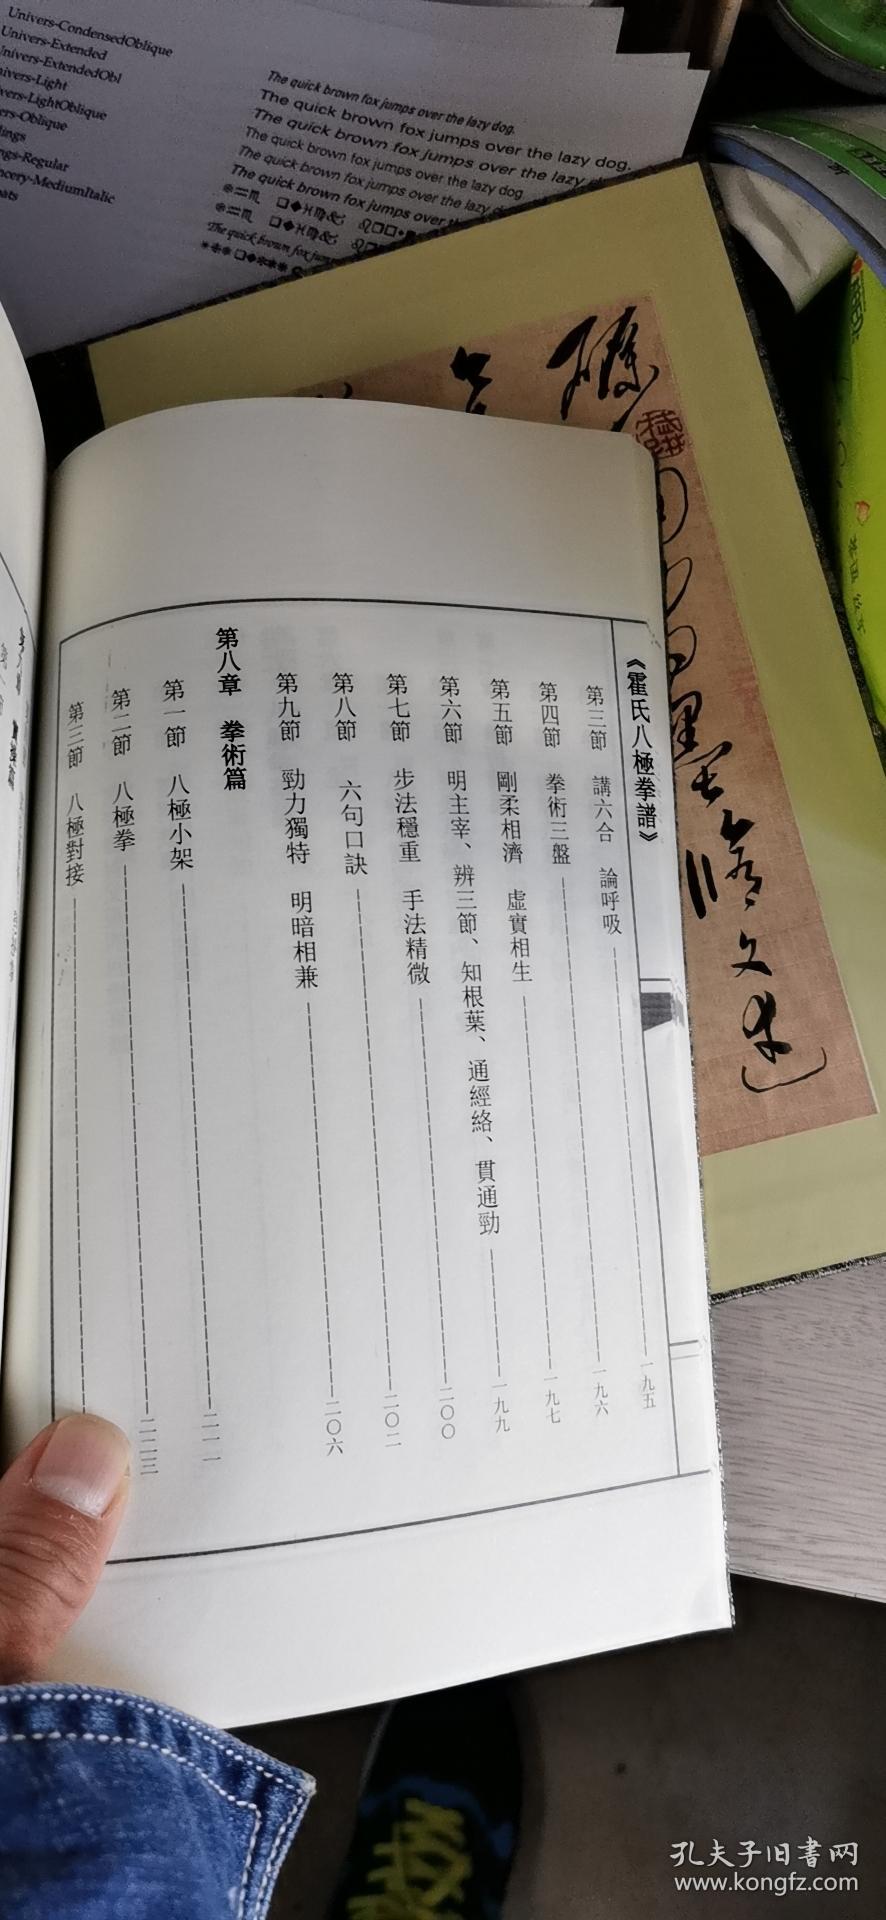 Univers-CondensedOblique
Univers-Extended
nivers-ExtendedObl
nivers-Light
vers-LightOblique
ers-Oblique
lings
ngs-Regular
ncery-MediumItalic
ats
The quick brown fox jumps over the lazy dog.
The quick brown fox jumps over the lazy dog.
The quick brown fox jumps over the lazy
The quick brown fox jumps over the lazy dog
The quick brown fox jumps over the lazy
The quick brown fox jumps over the
The quick brown fox
《霍氏八極拳譜》
第三節 講六合 論呼吸 一九五
第四節 拳術三盤 一九六
第五節 剛柔相濟 虛實相生 一九七
第六節 明主宰、辨三節、知根葉、通經絡、貫通勁 一九九
第七節 步法穩重 手法精微 二〇〇
第八節 六句口訣 二〇二
第九節 勁力獨特 明暗相兼 二〇六
第八章 拳術篇
第一節 八極小架 二一一
第二節 八極拳 二二三
第三節 八極對接
孔夫子旧書网
www.kongfz.com